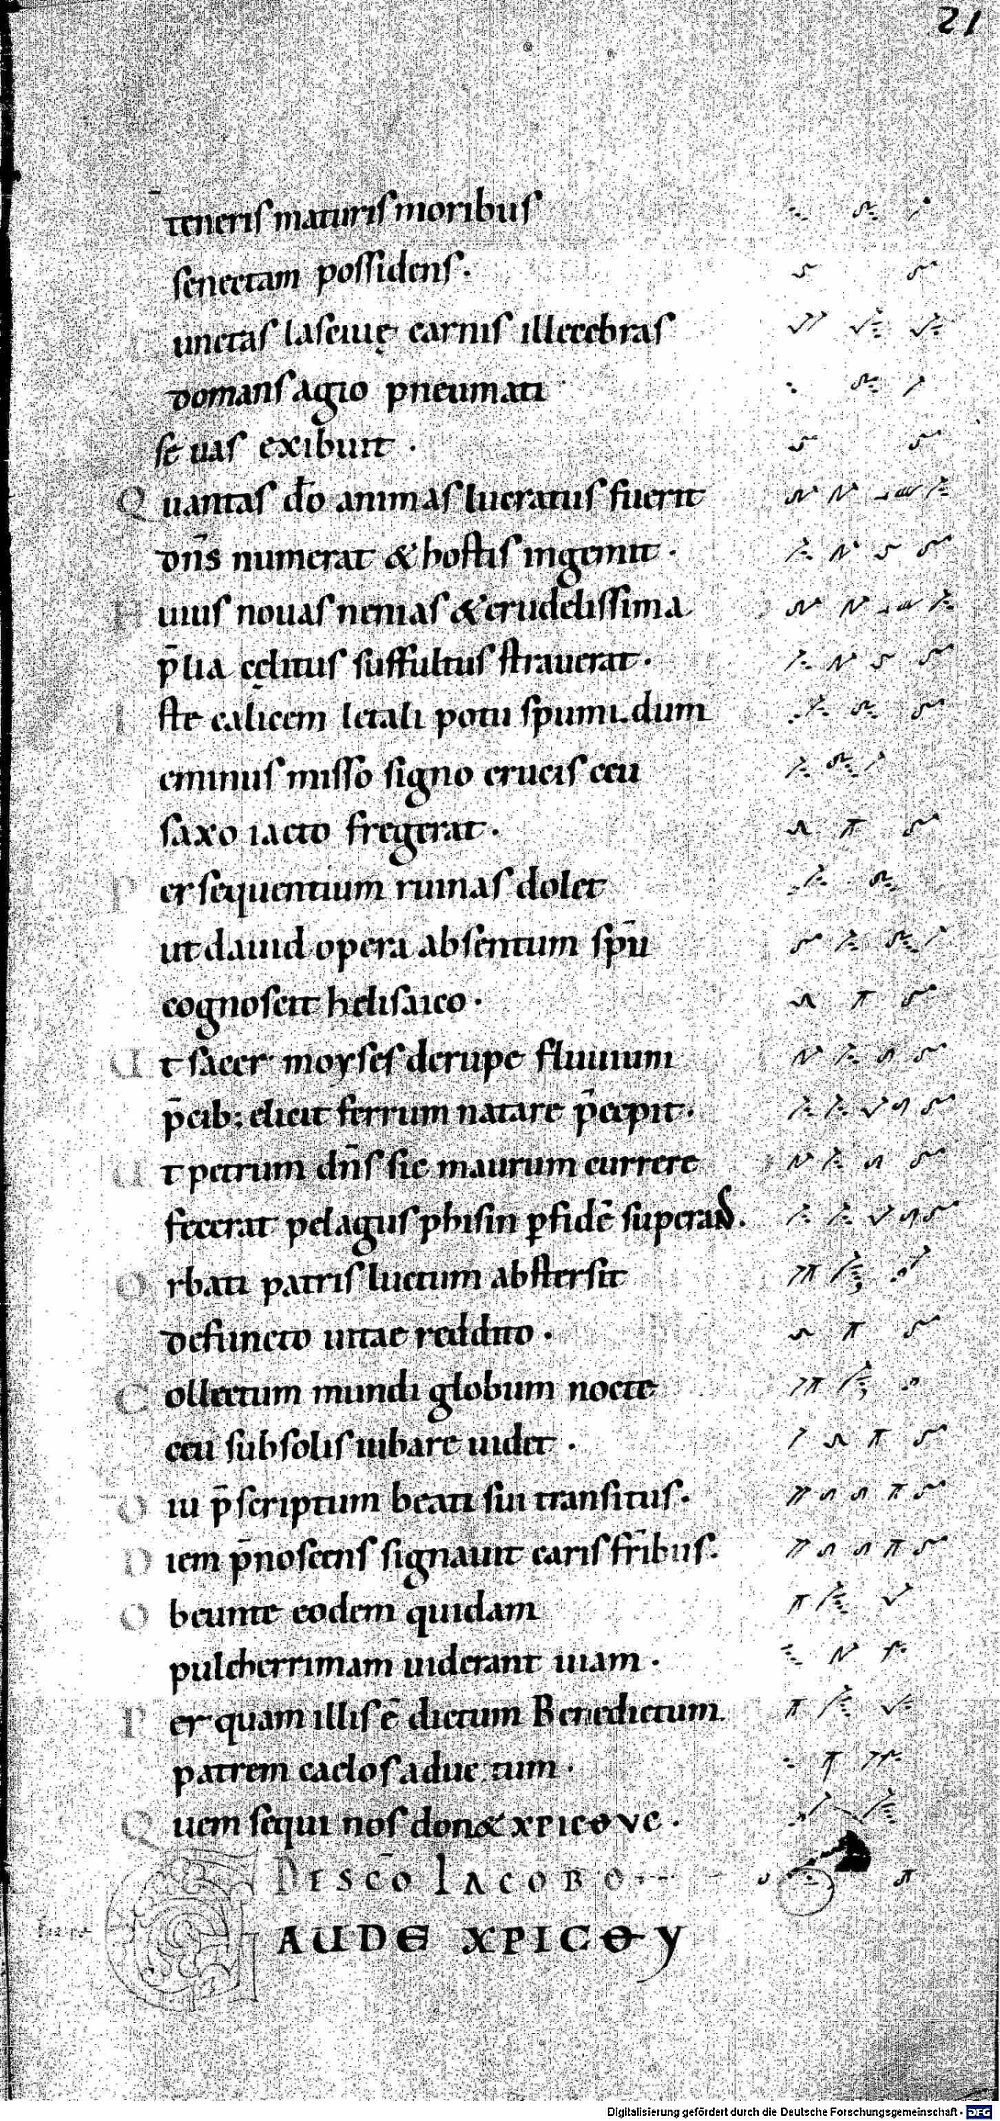 21
teneris maturis moribus
senectam possidens.
unctas lasciuę carnis illecebras
domans agio pneumati
se uas exibuit.
Quantas do̅ animas lucratus fuerit
dn̅s numerat & hostis ingemit.
Huius nouas nenias & crudelissima
p̅lia cęlitus suffultus strauerat.
Iste calicem letali potu spumi dum
eminus misso signo crucis ceu
saxo iacto fregerat.
Persequentium ruinas dolet
ut dauid opera absentum spu̅
cognoscit helisaico.
Ut sacer moyses de rupe fluuium
p̅cib; elicit ferrum natare p̅cipit.
Ut petrum dn̅s sic maurum currere
fecerat pelagus phisin p fide̅ superans.
Orbati patris luctum abstersit
defuncto uitae reddito.
Collectum mundi globum nocte
ceu sub solis iubare uidet.
Diu p̅scriptum beati sui transitus.
Diem p̅noscens signauit caris fr̅ibus.
Obeunte eodem quidam
pulcherrimam uiderant uiam.
Per quam illis e̅ dictum Benedictum
patrem caelos aduectum.
Quem sequi nos don& xpιcθ ve.
DE SCO̅ IACOBO
GAUDE XPICΘY
Digitalisierung gefördert durch die Deutsche Forschungsgemeinschaft - DFG